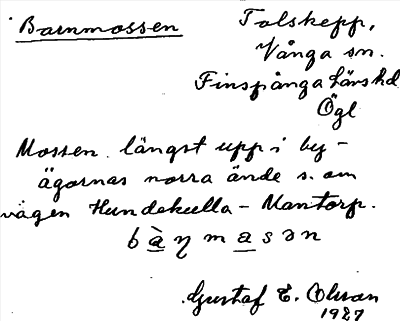 Barnmossen
Tolskepp,
Vånga sn.
Finspånga läns hd
Ögl
Mossen längst upp i by-
ägornas norra ände s. om
vägen Hundekulla - Mantorp.
bàɳmasən
Gustaf E. Olsson
1927